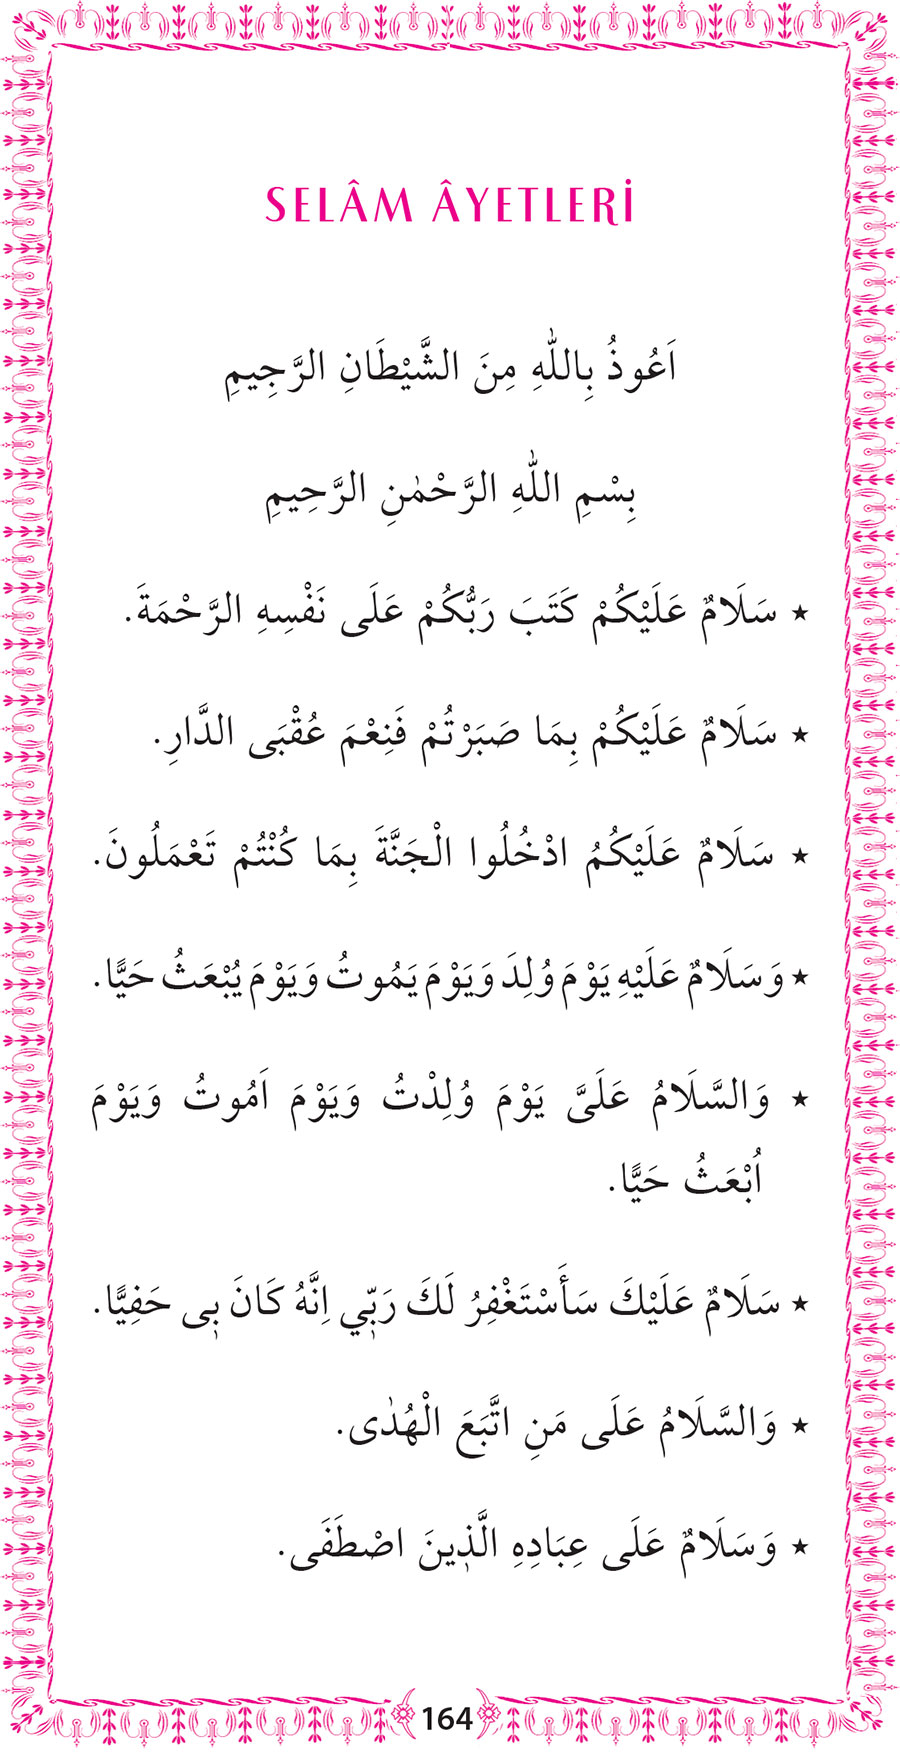 SELÂM ÂYETLERİ
اَعُوذُ بِاللّٰهِ مِنَ الشَّيْطَانِ الرَّجِيمِ
بِسْمِ اللّٰهِ الرَّحْمٰنِ الرَّحِيمِ
★ سَلَامٌ عَلَيْكُمْ كَتَبَ رَبُّكُمْ عَلَى نَفْسِهِ الرَّحْمَةَ.
★ سَلَامٌ عَلَيْكُمْ بِمَا صَبَرْتُمْ فَنِعْمَ عُقْبَى الدَّارِ.
★ سَلَامٌ عَلَيْكُمُ ادْخُلُوا الْجَنَّةَ بِمَا كُنْتُمْ تَعْمَلُونَ.
★ وَسَلَامٌ عَلَيْهِ يَوْمَ وُلِدَ وَيَوْمَ يَمُوتُ وَيَوْمَ يُبْعَثُ حَيًّا.
★ وَالسَّلَامُ عَلَىَّ يَوْمَ وُلِدْتُ وَيَوْمَ اَمُوتُ وَيَوْمَ
اُبْعَثُ حَيًّا.
★ سَلَامٌ عَلَيْكَ سَأَسْتَغْفِرُ لَكَ رَبّٖي اِنَّهُ كَانَ بٖى حَفِيًّا.
★ وَالسَّلَامُ عَلَى مَنِ اتَّبَعَ الْهُدٰى.
★ وَسَلَامٌ عَلَى عِبَادِهِ الَّذٖينَ اصْطَفَى.
164